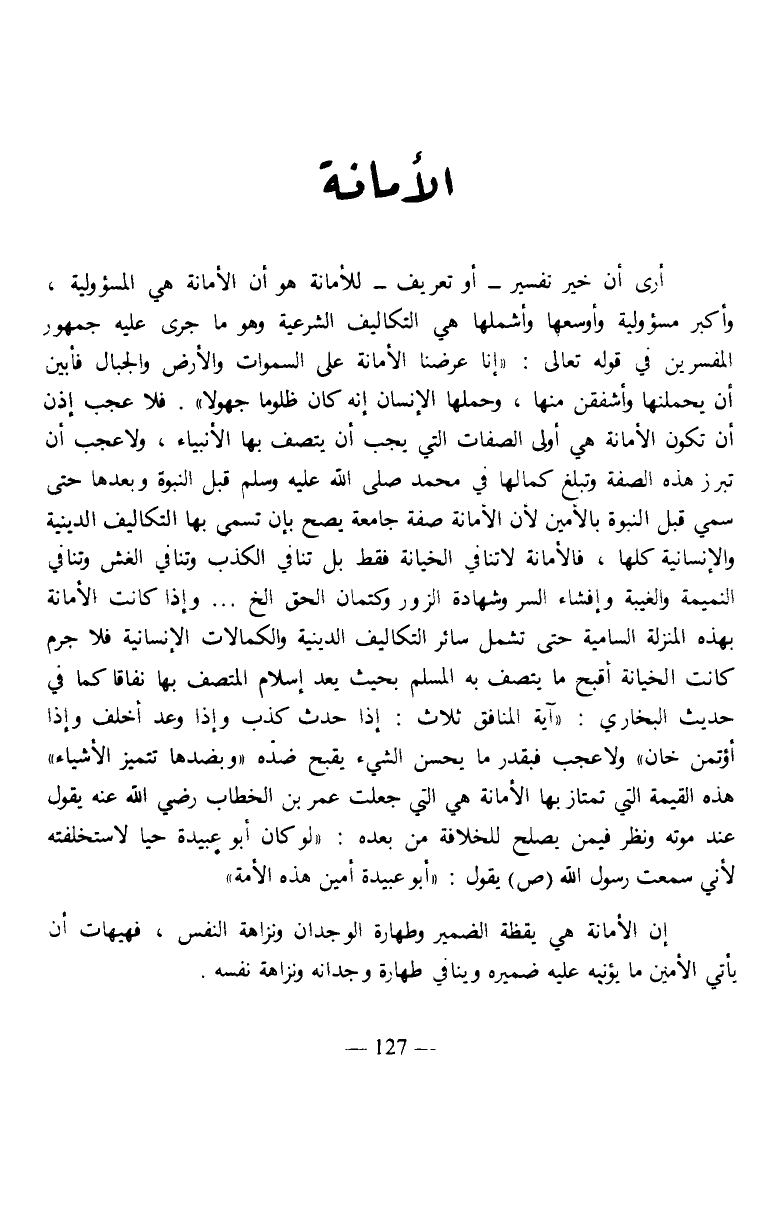 الأمانة
أرى أن خير تفسير – أو تعريف – للأمانة هو أن الأمانة هي المسؤولية ،
وأكبر مسؤولية وأوسعها وأشملها هي التكاليف الشرعية وهو ما جرى عليه جمهور
المفسرين في قوله تعالى : «إنا عرضنا الأمانة على السموات والأرض والجبال فأبين
أن يحملنها وأشفقن منها ، وحملها الإنسان إنه كان ظلوما جهولا» . فلا عجب إذن
أن تكون الأمانة هي أولى الصفات التي يجب أن يتصف بها الأنبياء ، ولاعجب أن
تبرز هذه الصفة وتبلغ كمالها في محمد صلى الله عليه وسلم قبل النبوة وبعدها حتى
سمي قبل النبوة بالأمين لأن الأمانة صفة جامعة يصح بإن تسمي بها التكاليف الدينية
والإنسانية كلها ، فالأمانة لاتنافي الخيانة فقط بل تنافي الكذب وتنافي الغش وتنافي
النميمة والغيبة وإفشاء السر وشهادة الزور وكتمان الحق الخ ... وإذا كانت الأمانة
بهذه المنزلة السامية حتى تشمل سائر التكاليف الدينية والكمالات الإنسانية فلا جرم
كانت الخيانة أقبح ما يتصف به المسلم بحيث يعد إسلام المتصف بها نفاقا كما في
حديث البخاري : «آية المنافق ثلاث : إذا حدث كذب وإذا وعد أخلف وإذا
أؤتمن خان» ولاعجب فبقدر ما يحسن الشيء يقبح ضده «وبضدها تتميز الأشياء»
هذه القيمة التي تمتاز بها الأمانة هي التي جعلت عمر بن الخطاب رضي الله عنه يقول
عند موته ونظر فيمن يصلح للخلافة من بعده : «لو كان أبو عبيدة حيا لاستخلفته
لأني سمعت رسول الله (ص) يقول : «أبو عبيدة أمين هذه الأمة»
إن الأمانة هي يقظة الضمير وطهارة الوجدان ونزاهة النفس ، فهيهات أن
يأتي الأمين ما يؤنبه عليه ضميره وينافي طهارة وجدانه ونزاهة نفسه .
— 127 —